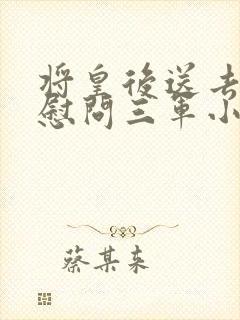 将皇後送去
慰问三军小
蔡某来